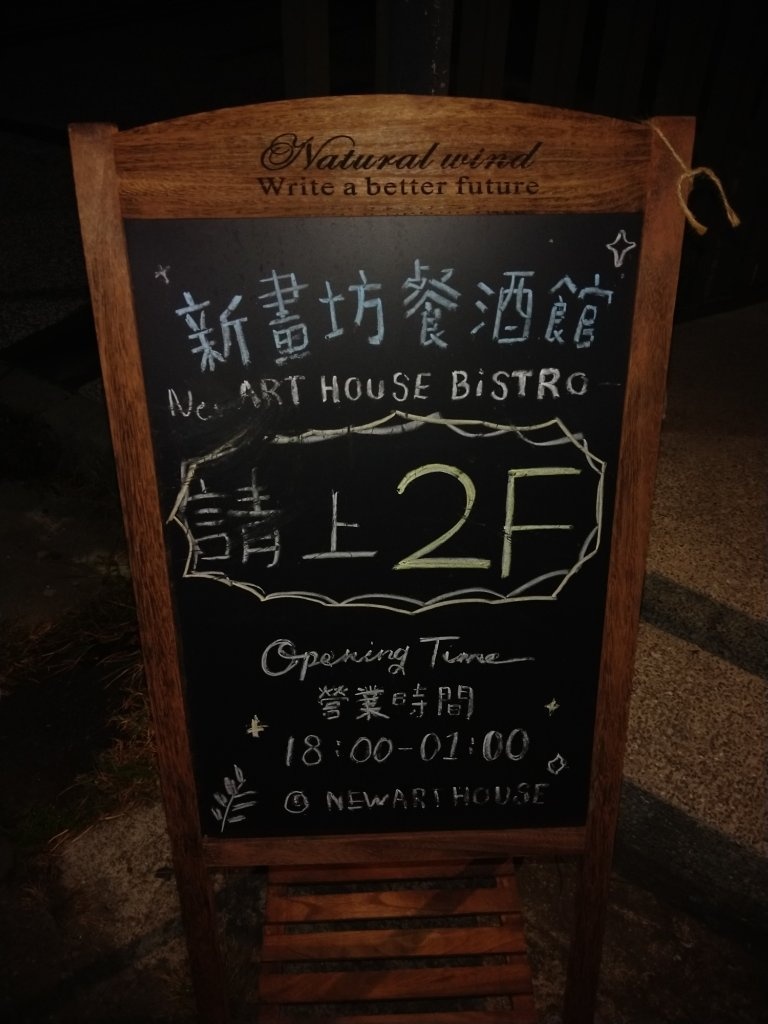 Natural wind
Write a better future
新畫坊餐酒館
New ART HOUSE BiSTRO
請上2F
Opening Time
營業時間
18:00-01:00
NEWART HOUSE